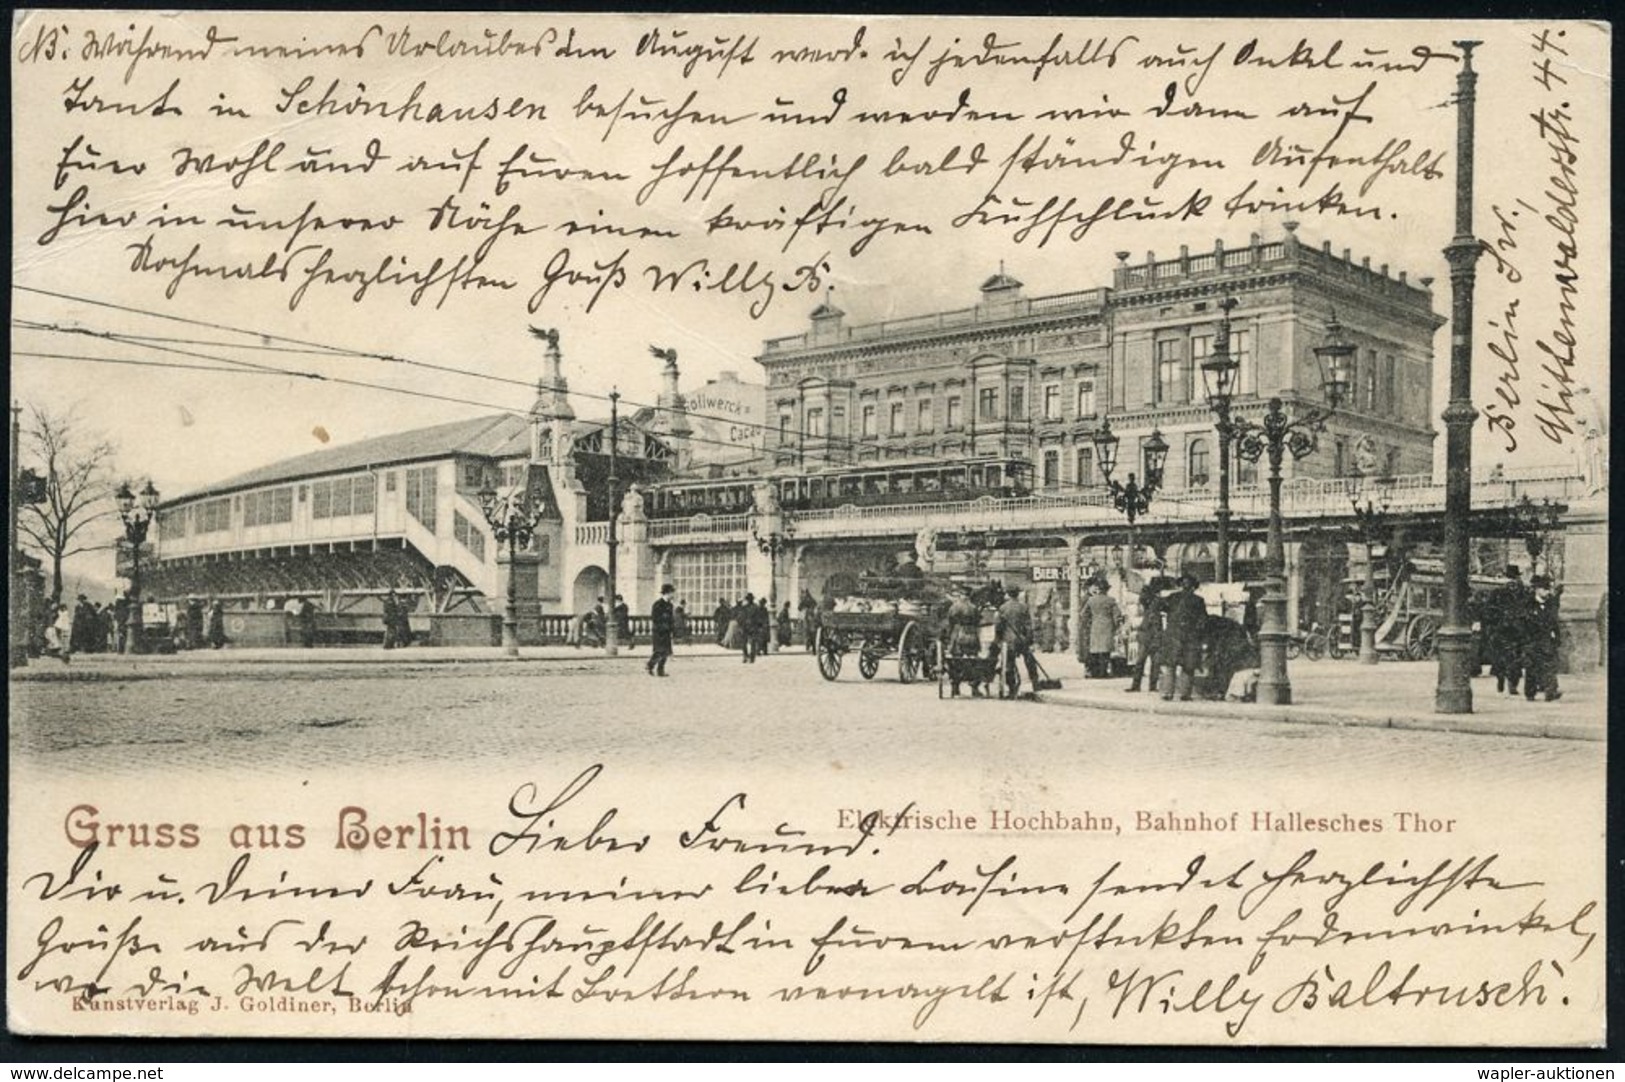 NB. Während meines Urlaubes im August werde ich jedenfalls auch Onkel und
Tante in Schönhausen besuchen und werden wir dann auf
Euer Wohl und auf Euren hoffentlich bald ständigen Aufenthalt
hier in unserer Nähe einen kräftigen Kuhschluck trinken.
Nochmals herzlichsten Gruß Willy B.
Berlin SW.,
Mittenwalderstr. 44.
Stollwerck's
Cacao
BIER-HALLE
Gruss aus Berlin
Elektrische Hochbahn, Bahnhof Hallesches Thor
Lieber Freund!
Dir u. Deiner Frau, meiner lieben Cousine sendet herzlichste
Grüße aus der Reichshauptstadt in Eurem versteckten Erdenwinkel,
wo die Welt schon mit Brettern vernagelt ist, Willy Baltrusch.
Kunstverlag J. Goldiner, Berlin
www.delcampe.net
wapler-auktionen